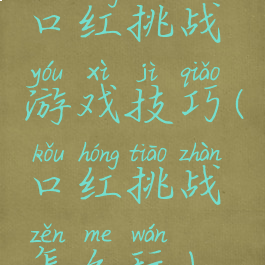 口红挑战
yóu xì jì qiǎo
游戏技巧(
kǒu hóng tiāo zhàn
口红挑战
zěn me wán
怎么玩)